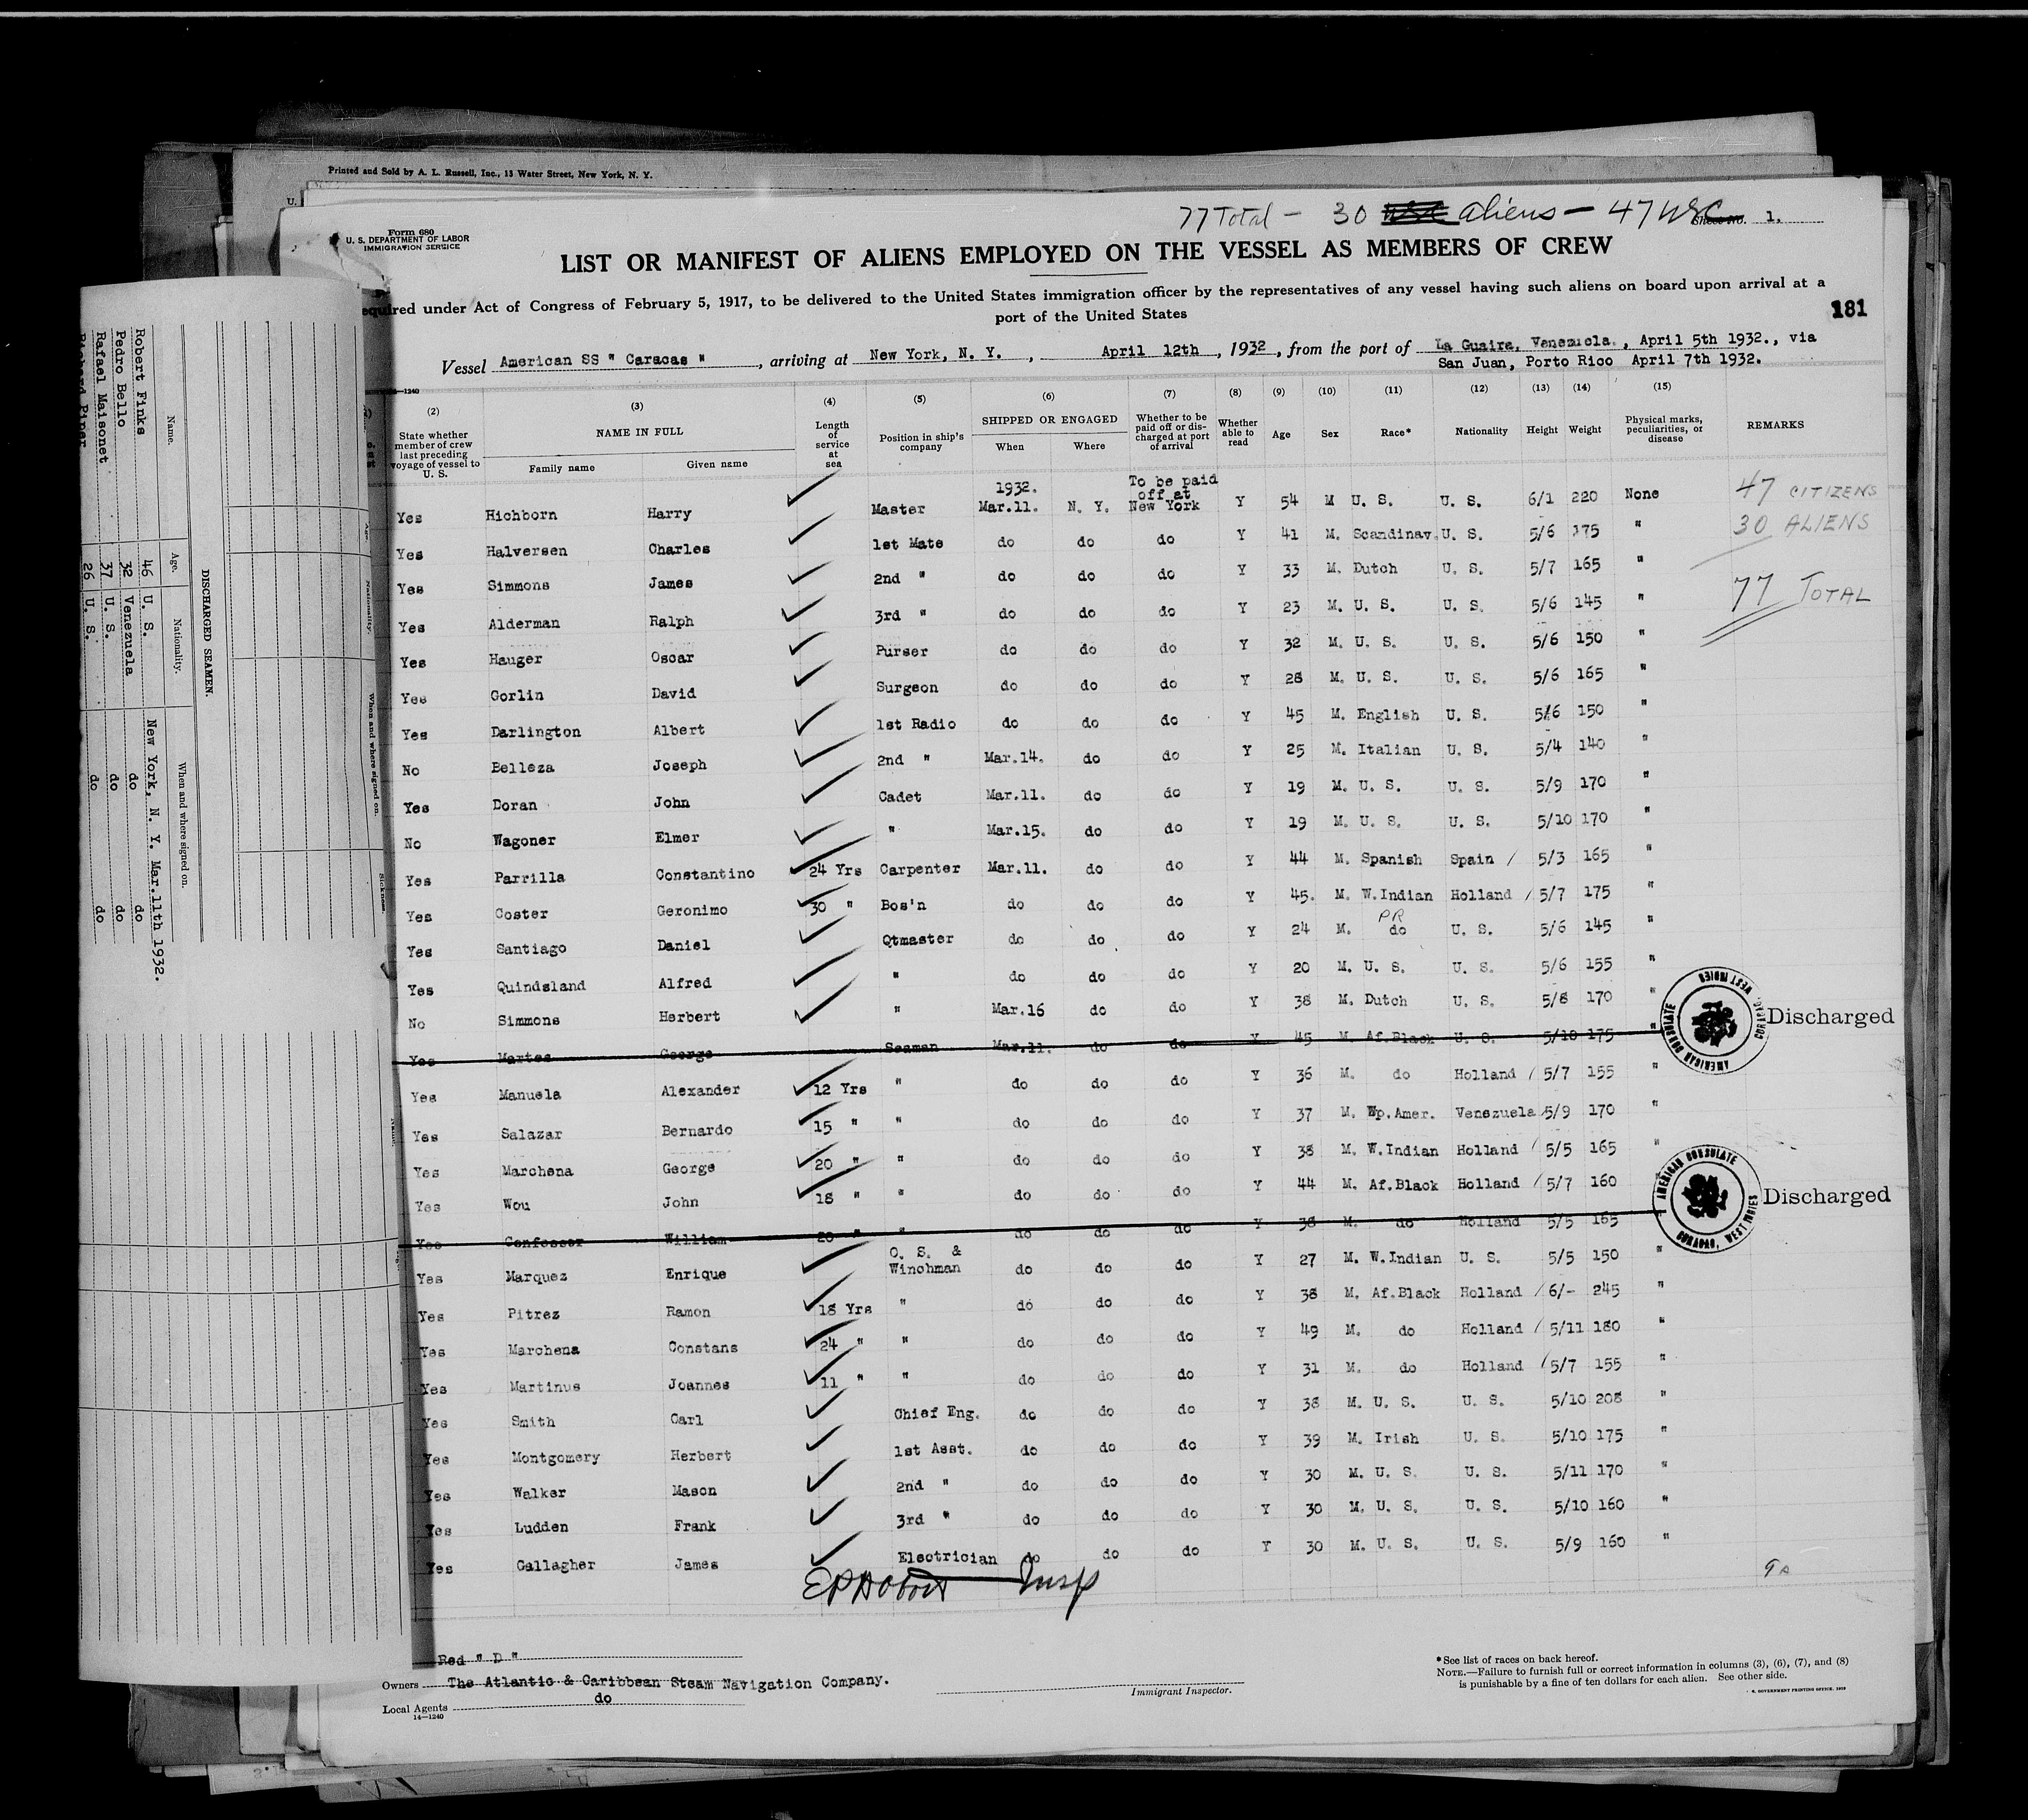 Printed and Sold by A. L. Russell, Inc., 13 Water Street, New York, N. Y.
U.
77 Total - 30 aliens - 47 USC 1.
Form 680
U. S. DEPARTMENT OF LABOR
IMMIGRATION SERVICE
LIST OR MANIFEST OF ALIENS EMPLOYED ON THE VESSEL AS MEMBERS OF CREW
equired under Act of Congress of February 5, 1917, to be delivered to the United States immigration officer by the representatives of any vessel having such aliens on board upon arrival at a
port of the United States
181
Vessel American SS " Caracas ", arriving at New York, N. Y., April 12th, 1932, from the port of La Guaira, Venezuela., April 5th 1932., via
San Juan, Porto Rico April 7th 1932.
14—1240
(2) (3) (4) (5) (6) (7) (8) (9) (10) (11) (12) (13) (14) (15)
State whether member of crew last preceding voyage of vessel to U. S. NAME IN FULL Family name Given name Length of service at sea Position in ship's company SHIPPED OR ENGAGED When Where Whether to be paid off or discharged at port of arrival Whether able to read Age Sex Race* Nationality Height Weight Physical marks, peculiarities, or disease REMARKS
Yes Hichborn Harry Master 1932. Mar.11. N. Y. To be paid off at New York Y 54 M U. S. U. S. 6/1 220 None
47 CITIZENS
Yes Halversen Charles 1st Mate do do do Y 41 M. Scandinav. U. S. 5/6 175 "
30 ALIENS
Yes Simmons James 2nd " do do do Y 33 M. Dutch U. S. 5/7 165 "
77 TOTAL
Yes Alderman Ralph 3rd " do do do Y 23 M. U. S. U. S. 5/6 145 "
Yes Hauger Oscar Purser do do do Y 32 M. U. S. U. S. 5/6 150 "
Yes Gorlin David Surgeon do do do Y 28 M. U. S. U. S. 5/6 165 "
Yes Darlington Albert 1st Radio do do do Y 45 M. English U. S. 5/6 150 "
No Belleza Joseph 2nd " Mar.14. do do Y 25 M. Italian U. S. 5/4 140 "
Yes Doran John Cadet Mar.11. do do Y 19 M. U. S. U. S. 5/9 170 "
No Wagoner Elmer " Mar.15. do do Y 19 M. U. S. U. S. 5/10 170 "
Yes Parrilla Constantino 24 Yrs Carpenter Mar.11. do do Y 44 M. Spanish Spain / 5/3 165 "
Yes Coster Geronimo 30 " Bos'n do do do Y 45. M. W.Indian Holland / 5/7 175 "
Yes Santiago Daniel Qtmaster do do do Y 24 M. PR do U. S. 5/6 145 "
Yes Quindsland Alfred " do do do Y 20 M. U. S. U. S. 5/6 155 "
No Simmons Herbert " Mar.16 do do Y 38 M. Dutch U. S. 5/8 170 "
Yes Martes George Seaman Mar.11. do do Y 45 M. Af.Black U. S. 5/10 175 " Discharged
AMERICAN CONSULATE CURACAO, WEST INDIES
Yes Manuela Alexander 12 Yrs " do do do Y 36 M. do Holland / 5/7 155 "
Yes Salazar Bernardo 15 " " do do do Y 37 M. Wp.Amer. Venezuela 5/9 170 "
Yes Marchena George 20 " " do do do Y 38 M. W.Indian Holland / 5/5 165 "
Yes Wou John 18 " " do do do Y 44 M. Af.Black Holland / 5/7 160
Yes Confesser William 20 " " do do do Y 38 M. do Holland 5/5 165 Discharged
AMERICAN CONSULATE CURACAO, WEST INDIES
Yes Marquez Enrique O. S. & Winchman do do do Y 27 M. W.Indian U. S. 5/5 150 "
Yes Pitrez Ramon 18 Yrs " do do do Y 38 M. Af.Black Holland / 6/- 245 "
Yes Marchena Constans 24 " " do do do Y 49 M. do Holland / 5/11 180 "
Yes Martinus Joannes 11 " " do do do Y 31 M. do Holland / 5/7 155 "
Yes Smith Carl Chief Eng. do do do Y 38 M. U. S. U. S. 5/10 208 "
Yes Montgomery Herbert 1st Asst. do do do Y 39 M. Irish U. S. 5/10 175 "
Yes Walker Mason 2nd " do do do Y 30 M. U. S. U. S. 5/11 170 "
Yes Ludden Frank 3rd " do do do Y 30 M. U. S. U. S. 5/10 160 "
Yes Gallagher James Electrician do do do Y 30 M. U. S. U. S. 5/9 160 "
Insp
9 A
Red " D "
Owners The Atlantic & Caribbean Steam Navigation Company.
Local Agents do
14—1240
Immigrant Inspector.
*See list of races on back hereof.
NOTE.—Failure to furnish full or correct information in columns (3), (6), (7), and (8)
is punishable by a fine of ten dollars for each alien. See other side.
U. S. GOVERNMENT PRINTING OFFICE: 1929
DISCHARGED SEAMEN.
Name. Age. Nationality. When and where signed on.
Robert Finks 46 U. S. New York, N. Y. Mar.11th 1932.
Pedro Bello 32 Venezuela do do
Rafael Maisonet 37 U. S. do do
Richard Piper 26 U. S. do do
Nationality. When and where signed on. Sickness.